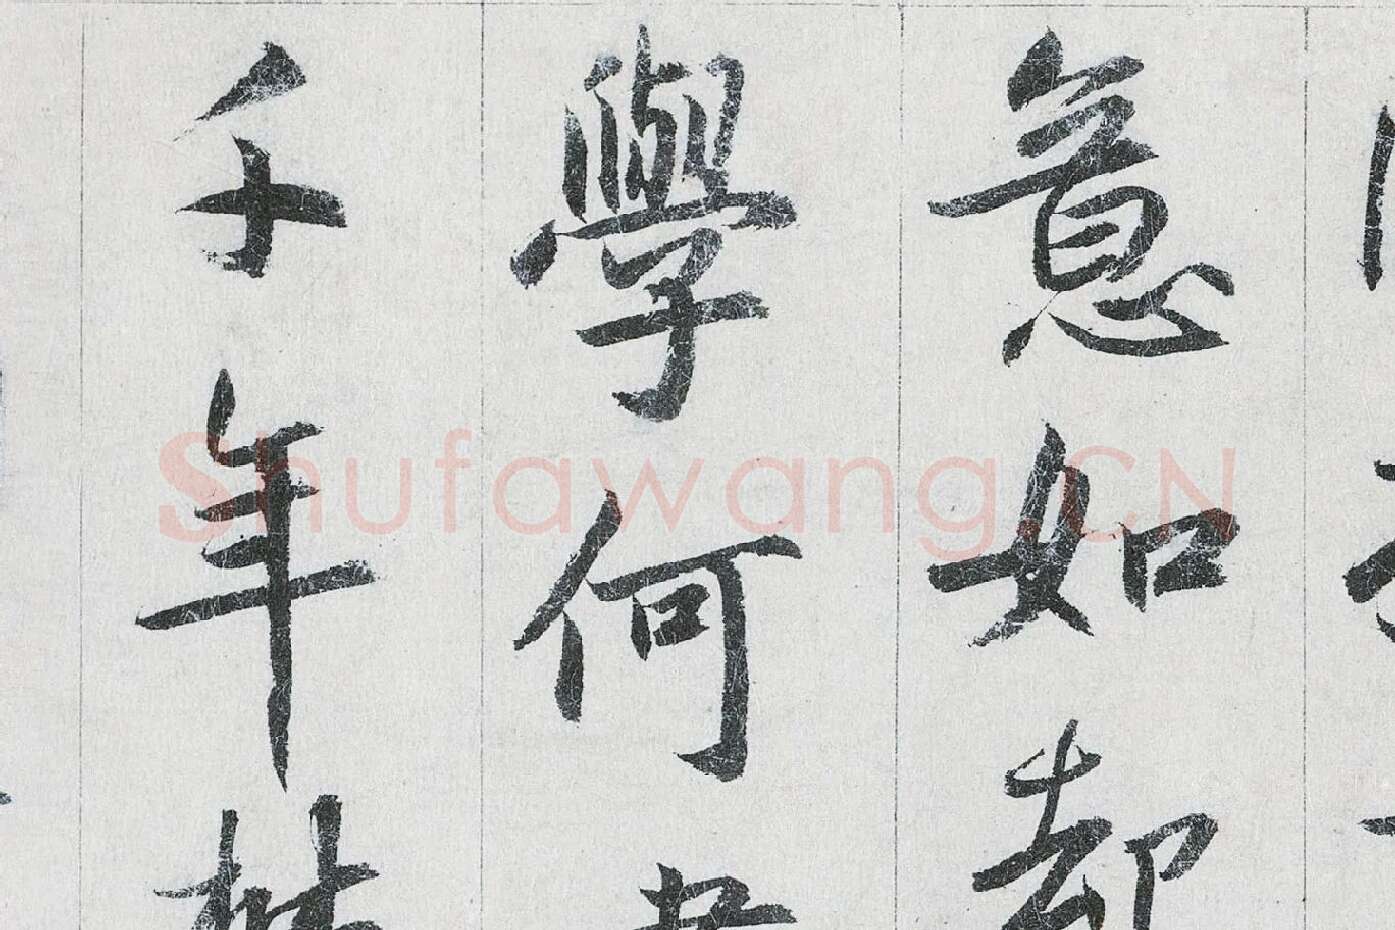 意如却
學何
千年
Shufawang.CN